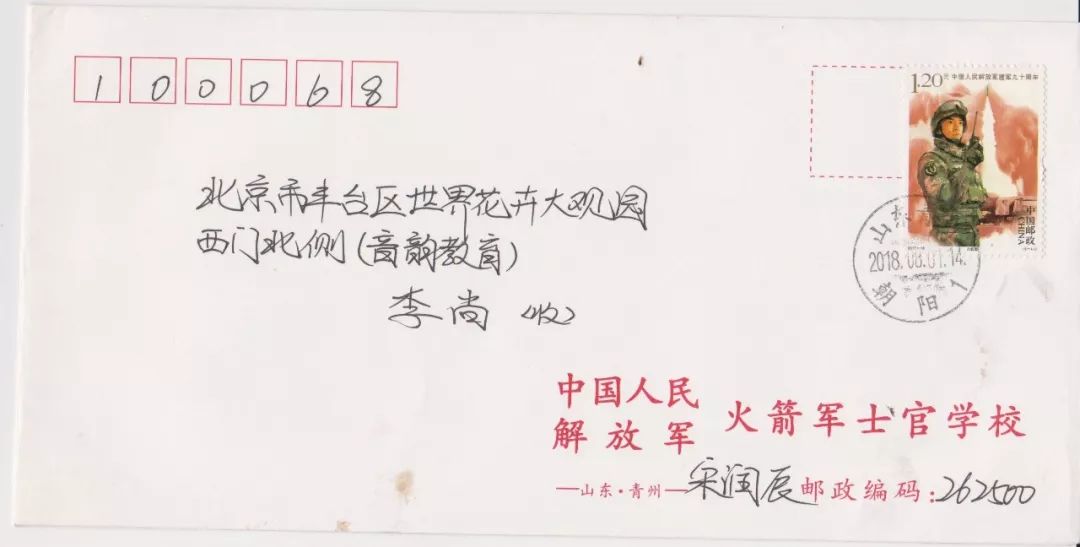 100068
1.20元 中国人民解放军建军九十周年
中国邮政
CHINA
山东
2018.08.01.14
朝阳1
北京市丰台区世界花卉大观园
西门北侧(音韵教育)
李尚(收)
中国人民
解放军 火箭军士官学校
—山东·青州— 宋润辰 邮政编码:262500